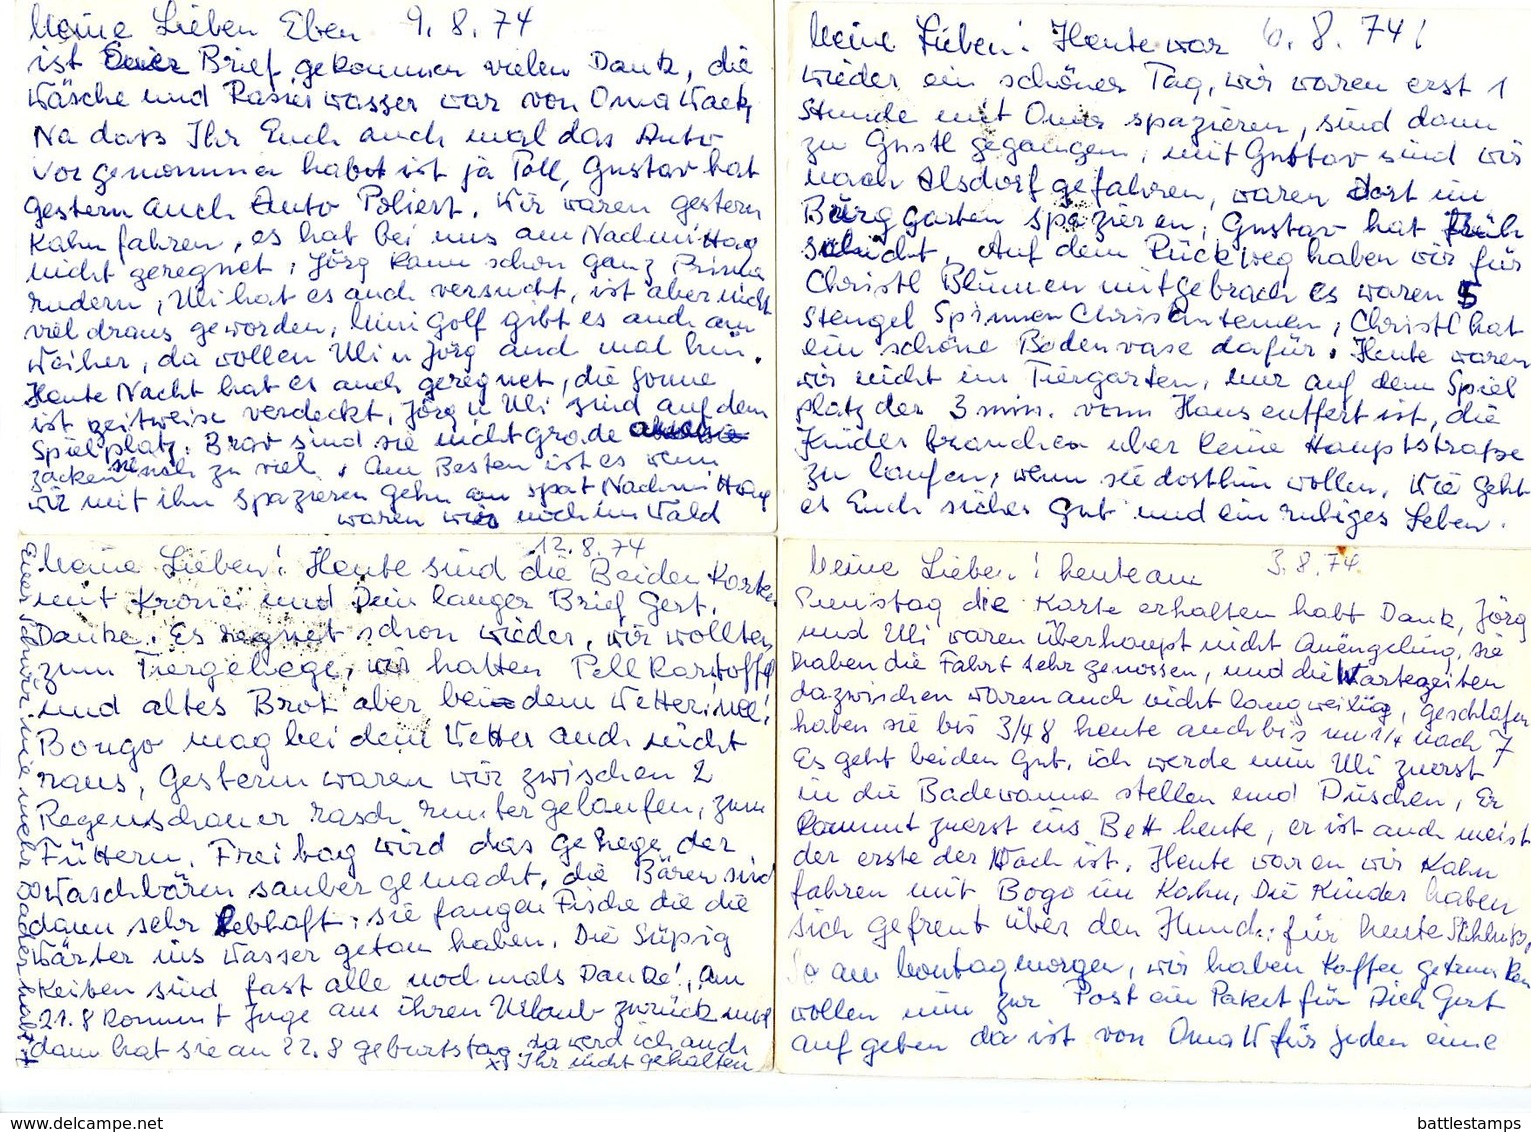 Meine Lieben Eben 9.8.74
ist Euer Brief gekommen vielen Dank, die
Wäsche und Rasierwasser war von Oma
Na dass Ihr Euch auch mal das Auto
vorgenommen habt ist ja Toll, Gustav hat
gestern auch Auto Poliert. Wir waren gestern
Kahn fahren, es hat bei uns am Nachmittag
nicht geregnet, Jörg kann schon ganz Prima
rudern, Uli hat es auch versucht, ist aber nicht
viel draus geworden, Mini Golf gibt es auch am
Weiher, da wollen Uli u Jörg auch mal hin.
Heute Nacht hat es auch geregnet, die Sonne
ist zeitweise verdeckt, Jörg u Uli sind auf dem
Spielplatz. Brav sind sie nicht grade
zacken sich zu viel. Am Besten ist es wenn
wir mit ihn spazieren gehn am spät Nachmittag
waren wir noch im Wald
Meine Lieben! Heute war 6.8.74!
wieder ein schöner Tag, wir waren erst 1
Stunde mit Oma spazieren, sind dann
zu Gustl gegangen, mit Gustav sind wir
nach Alsdorf gefahren, waren dort im
Burggarten spazieren, Gustav hat Früh
schicht, Auf dem Rückweg haben wir für
Christl Blumen mitgebrach es waren 5
Stengel Spinnen Chrisantemen, Christl hat
ein schöne Bodenvase dafür. Heute waren
wir nicht im Tiergarten, nur auf dem Spiel
platz der 3 min. vom Haus entfert ist, die
Kinder brauchen über keine Hauptstraße
zu laufen, wenn sie dorthin wollen. Wie geht
es Euch sicher Gut und ein ruhiges Leben.
12.8.74
Meine Lieben! Heute sind die Beiden Karten
mit Krone und Dein langer Brief Gert.
Danke. Es regnet schon wieder, wir wollten
zum Tiergehege, wir hatten Pellkartoffel
und altes Brot aber bei dem Wetter, nee!
Bongo mag bei dem Wetter auch nicht
raus, Gestern waren wir zwischen 2
Regenschauer rasch runter gelaufen, zum
Füttern. Freitag wird das Gehege der
Waschbären sauber gemacht, die Bären sind
dann sehr lebhaft, sie fangen Fische die die
Wärter ins Wasser getan haben. Die Süßig
keiten sind fast alle nochmals Danke! Am
21.8 kommt Inge aus ihren Urlaub zurück und
dann hat sie am 22.8 geburtstag. da werd ich auch
Ihr nicht gehalten
Meine Lieben! heute am 3.8.74
Samstag die Karte erhalten habt Dank, Jörg
und Uli waren überhaupt nicht Quengelig, sie
haben die Fahrt sehr genossen, und die Wartezeiten
dazwischen waren auch nicht langweilig, geschlafen
haben sie bis 3/4 8 heute auch bis um 1/4 nach 7
Es geht beiden Gut, ich werde nun Uli zuerst
in die Badewanne stellen und Duschen, Er
kommt zuerst ins Bett heute, er ist auch meist
der erste der Wach ist. Heute waren wir Kahn
fahren mit Bogo im Kahn, Die Kinder haben
sich gefreut über den Hund. für heute Schluß.
So am Montagmorgen, wir haben Kaffee getrunken
wollen nun zur Post ein Paket für Dich Gert
auf geben da ist von Oma W für jeden eine
delcampe.net
battlestamps